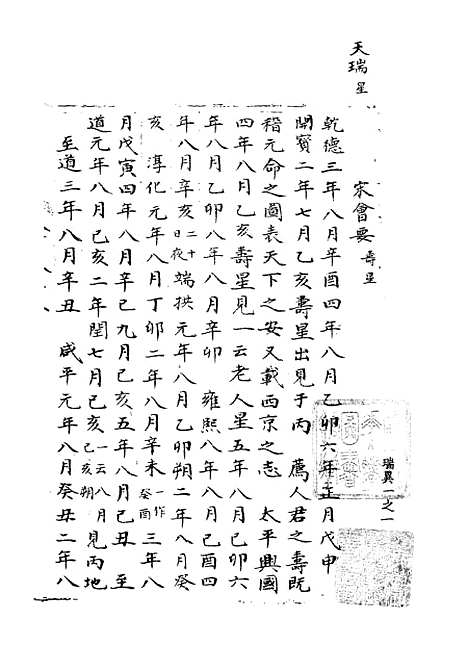 天瑞星
宋會要 壽星
瑞異一之一
乾德三年八月辛酉四年八月乙卯六年正月戊申
開寶二年七月乙亥壽星出見于丙 薦人君之壽既
稽元命之圖表天下之安又載西京之志 太平興國
四年八月乙亥壽星見一云老人星五年八月己卯六
年八月乙卯八年八月辛卯 雍熙八年八月己酉四
年八月辛亥二十日夜端拱元年八月乙卯朔二年八月癸
亥 淳化元年八月丁卯二年八月辛未一作癸酉三年八
月戊寅四年八月辛巳九月己亥五年八月己丑 至
道元年八月己亥二年閏七月己亥一云八月己亥朔見丙地
至道三年八月辛丑 咸平元年八月癸丑二年八